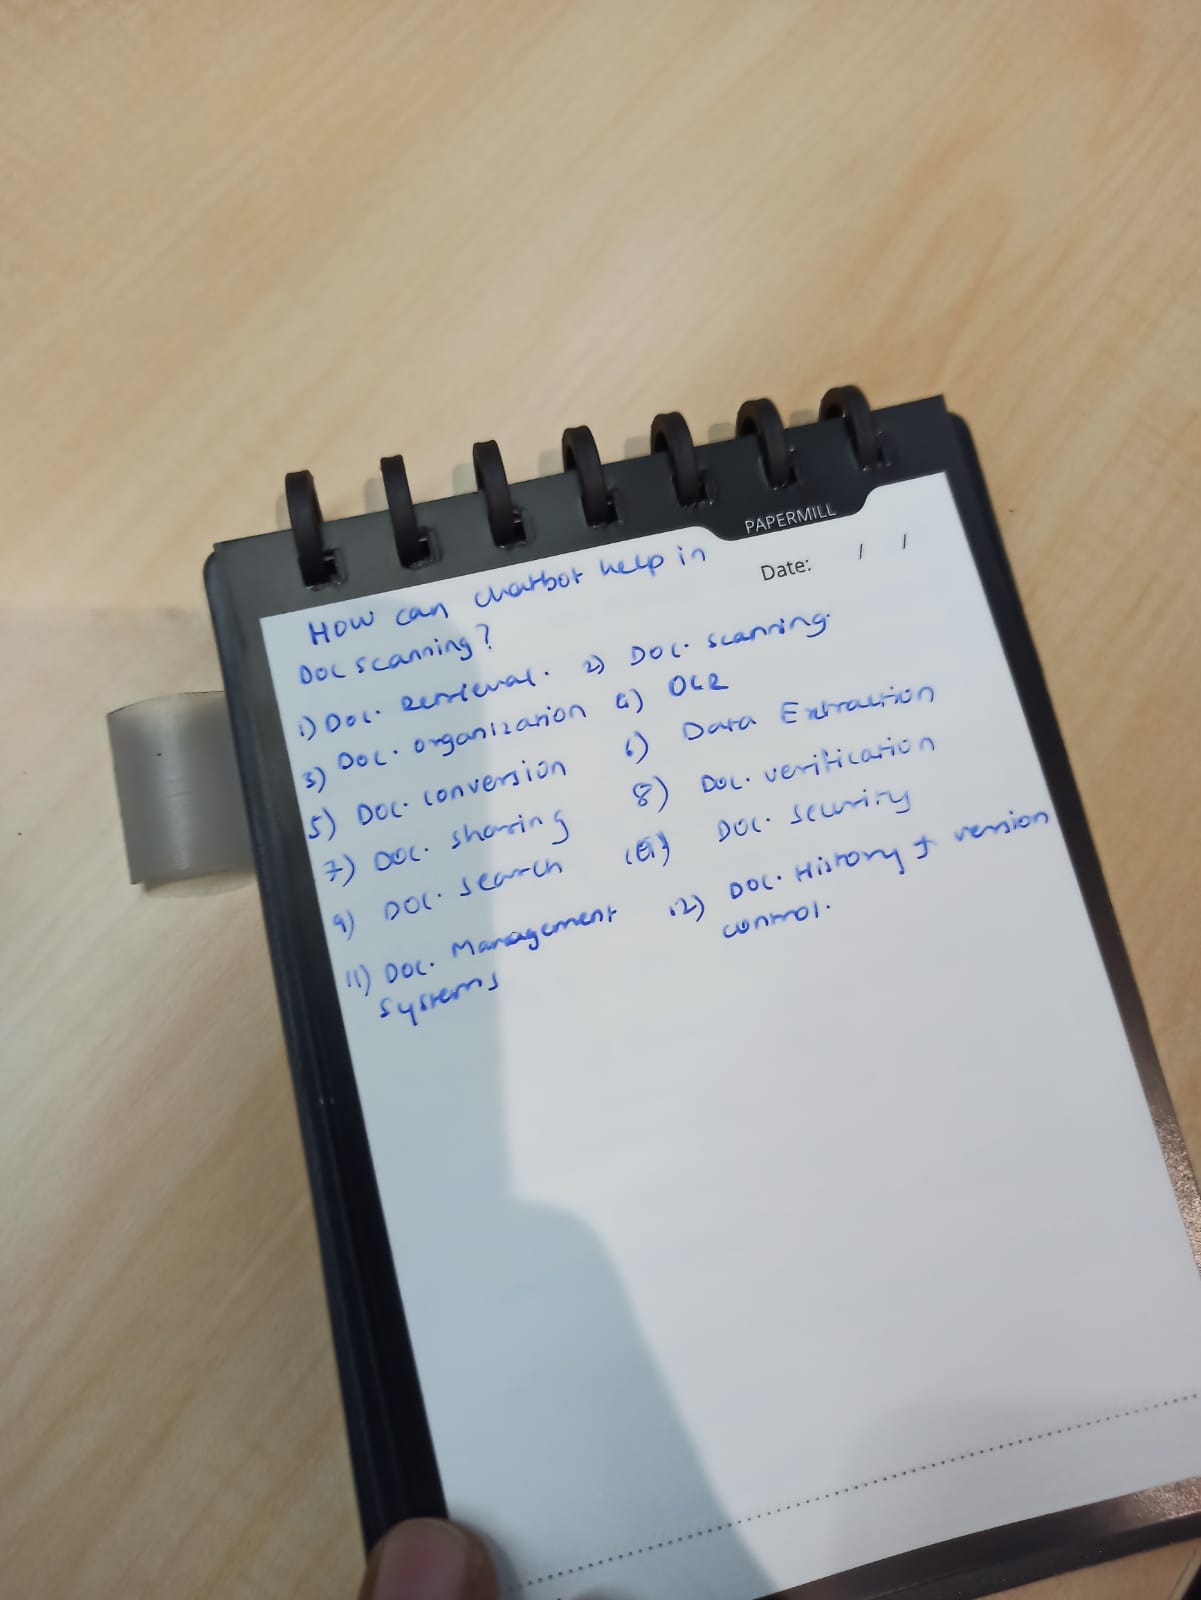 PAPERMILL
Date: / /
How can chatbot help in
Doc scanning?
1) Doc. Retrieval. 2) Doc. scanning.
3) Doc. organization 4) OCR
5) Doc. conversion 6) Data Extraction
7) Doc. sharing 8) Doc. verification
9) Doc. search 10) Doc. security
11) Doc. Management 12) Doc. History & version
systems control.